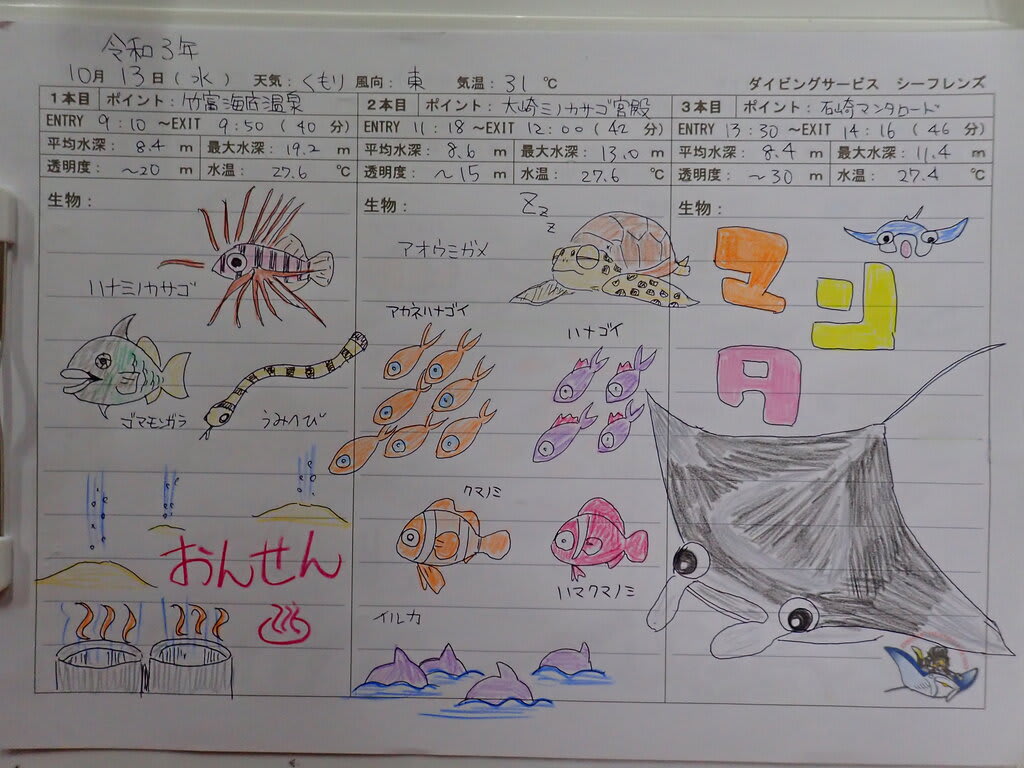 令和3年
10月 13日(水) 天気:くもり 風向:東 気温:31℃ ダイビングサービス シーフレンズ
1本目 ポイント:竹富海底温泉
ENTRY 9:10 ~EXIT 9:50 (40 分)
平均水深: 8.4 m 最大水深: 19.2 m
透明度: ~20 m 水温: 27.6 ℃
生物:
ハナミノカサゴ
ゴマモンガラ うみへび
おんせん
2本目 ポイント:大崎ミノカサゴ宮殿
ENTRY 11:18 ~EXIT 12:00 (42 分)
平均水深: 8.6 m 最大水深: 13.0 m
透明度: ~15 m 水温: 27.6 ℃
生物:
Zzz
アオウミガメ
アカネハナゴイ ハナゴイ
クマノミ
ハマクマノミ
イルカ
3本目 ポイント:石崎マンタロード
ENTRY 13:30 ~EXIT 14:16 (46 分)
平均水深: 8.4 m 最大水深: 11.4 m
透明度: ~30 m 水温: 27.4 ℃
生物:
マンタ